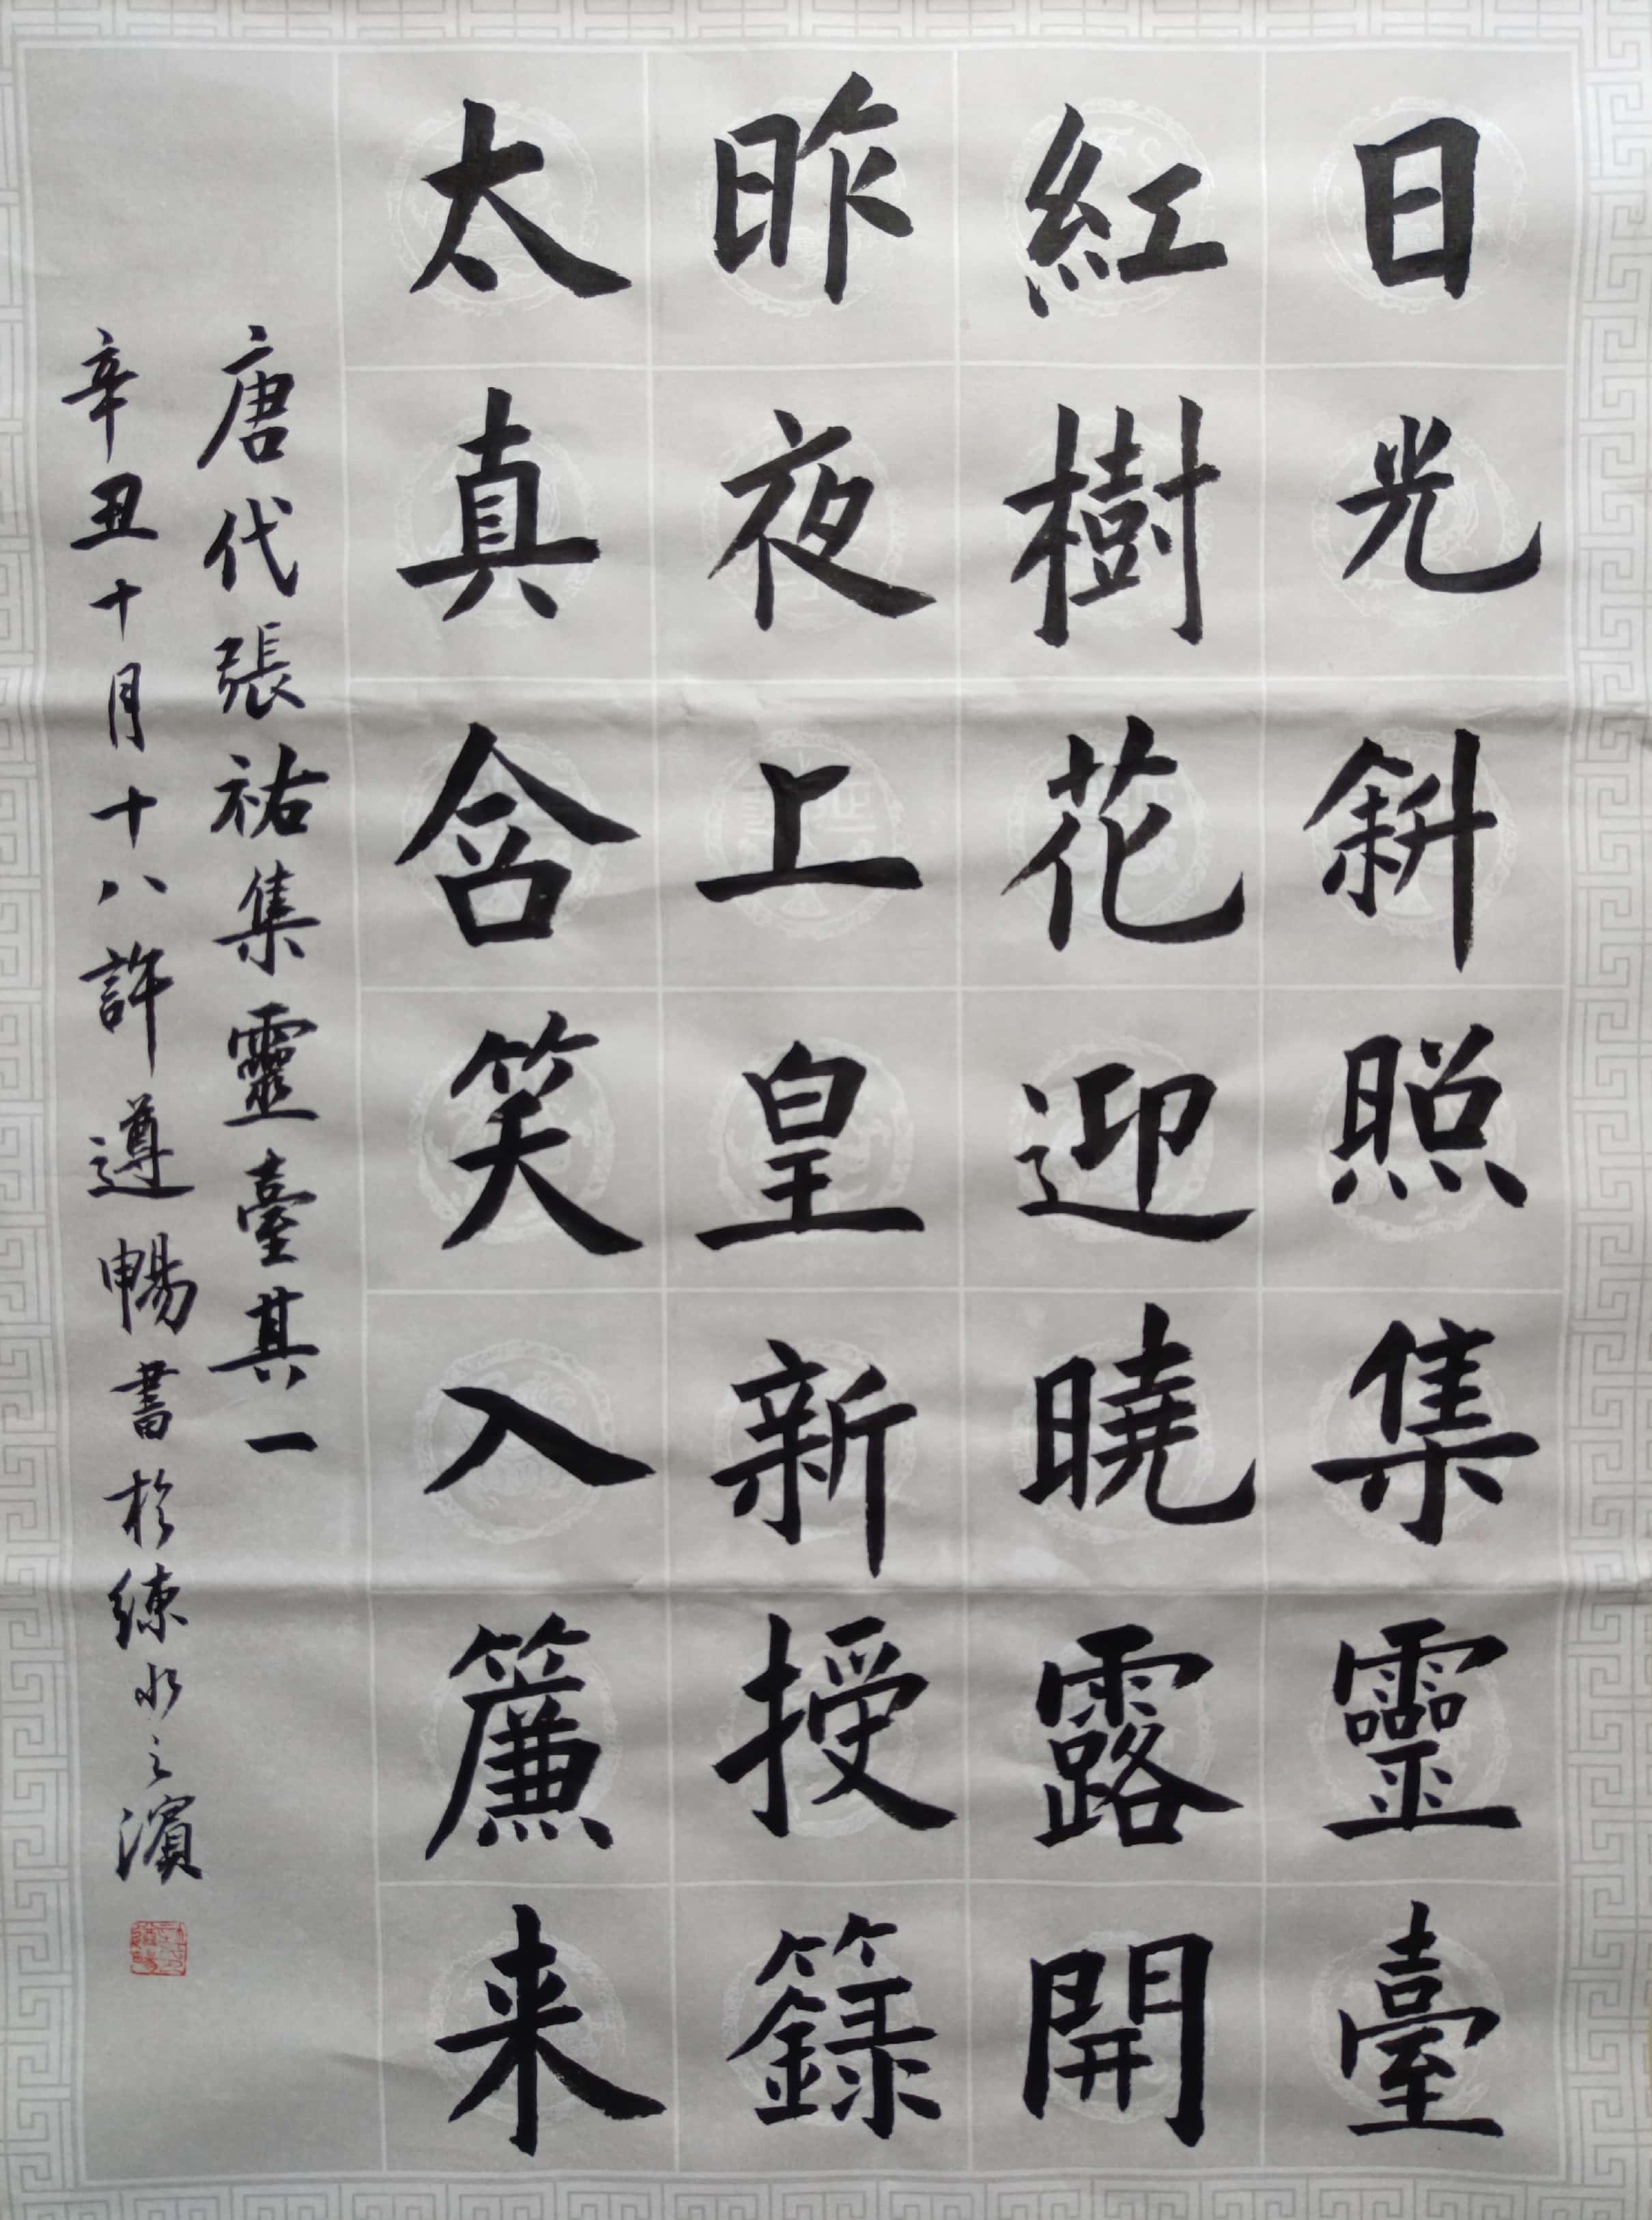 日光斜照集靈臺
紅樹花迎曉露開
昨夜上皇新授籙
太真含笑入簾来
唐代張祐集靈臺其一
辛丑十月十八許遵暢書於練水之濱